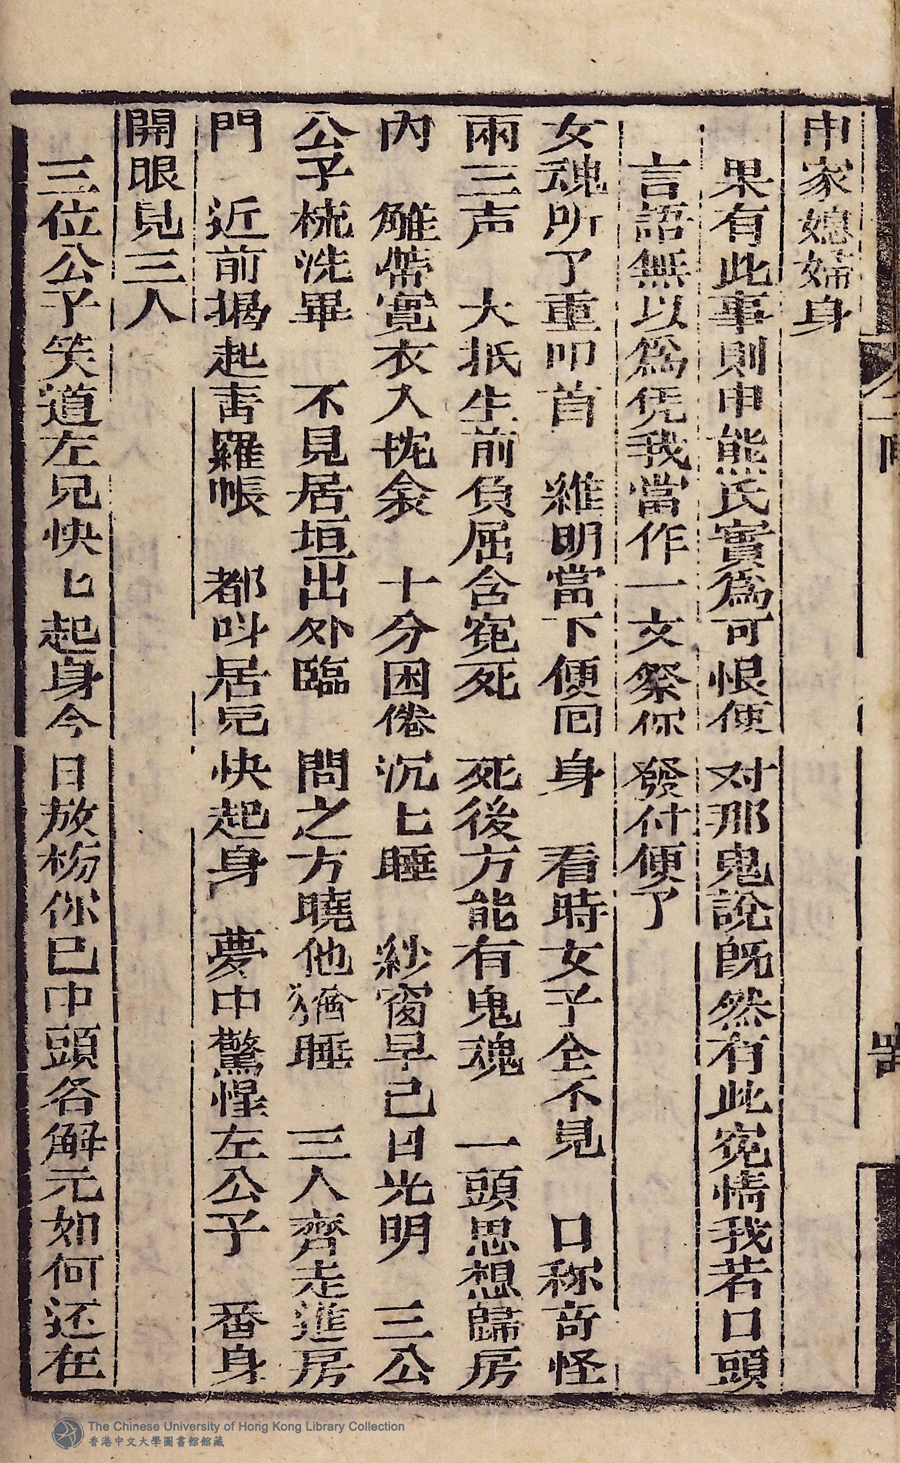 申家媳婦身
果有此事則申熊氏實爲可恨便对那鬼說旣然有此寃情我若口頭
言語無以爲凭我當作一文祭你發付便了
女魂所了重叩首　維明當下便囘身　看時女子全不見　口称奇怪
兩三声　大抵生前負屈含寃死　死後方能有鬼魂　一頭思想歸房
內　觧帶寬衣入枕衾　十分困倦沉匕睡　紗窗早己日光明　三公
公子梳洗畢　不見居垣出外臨　問之方曉他猶睡　三人齊走進房
門　近前揭起靑羅帳　都呌居兄快起身　夢中驚惺左公子　番身
開眼見三人
三位公子笑道左兄快匕起身今日放榜你已中頭名觧元如何还在
The Chinese University of Hong Kong Library Collection
香港中文大學圖書館館藏